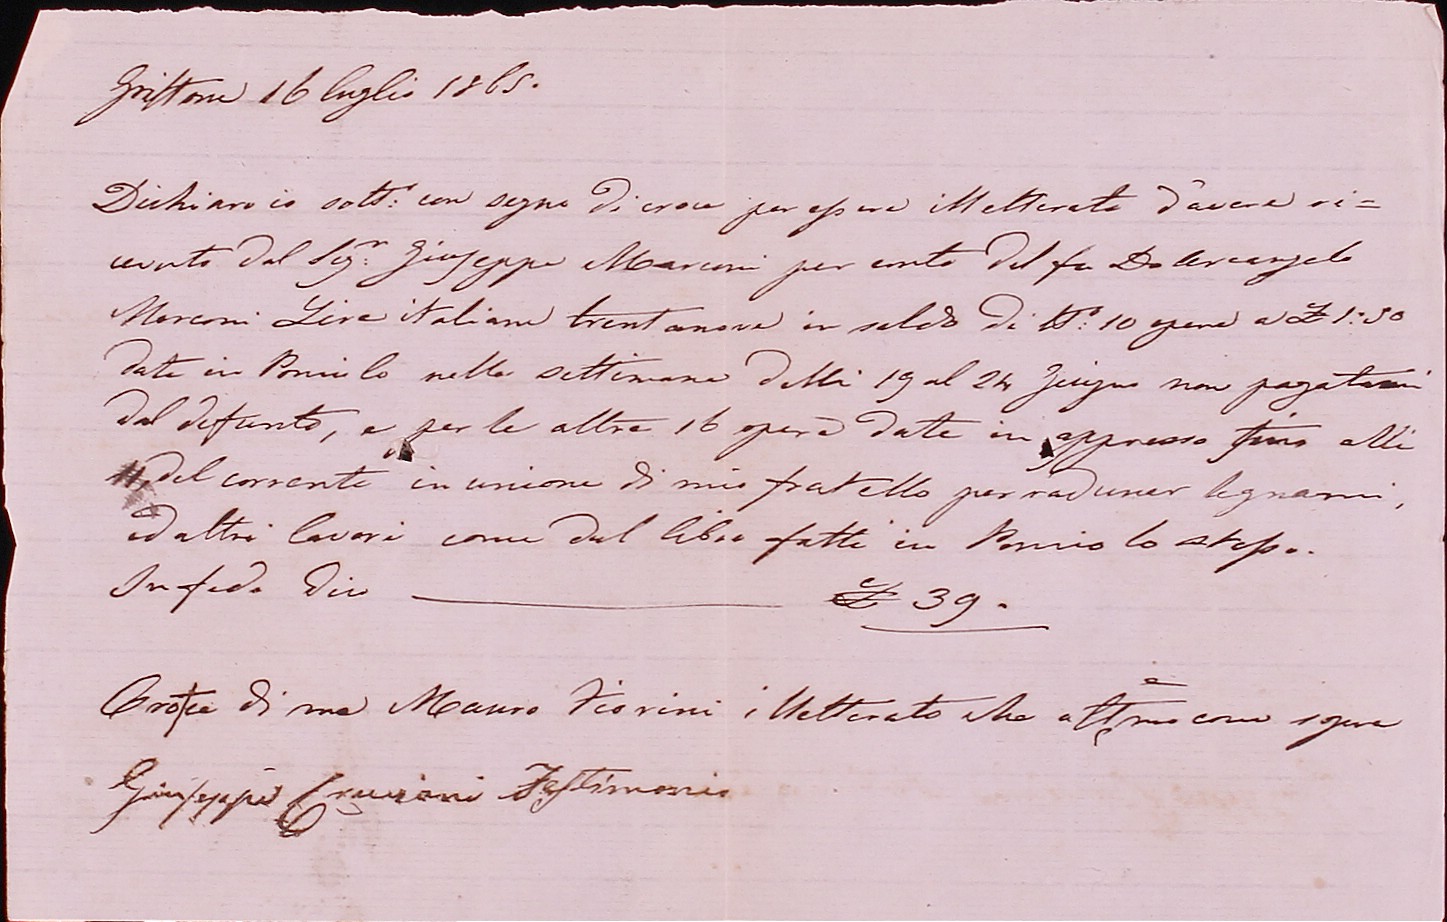 Griffone 16 luglio 1865.
Dichiaro io sott.º con segno di croce per essere illetterato d'avere ri=
cevuto dal Sig.r Giuseppe Marconi per conto del fu Dn Arcangelo
Marconi Lire italiane trentanove in saldo di N.º 10 opere a £ 1:50
date in Pornio lo nella settimana delli 19 al 24 Giugno non pagatemi
dal defunto, e per le altre 16 opere date in appresso fino alli
11 del corrente in unione di mio fratello per radunar legnami,
ed altri lavori come dal libro fatti in Pornio lo stesso.
In fede dico £ 39.
Cro†ce di me Mauro Fiorini illetterato che affmo come sopra
Giuseppe Testimonio